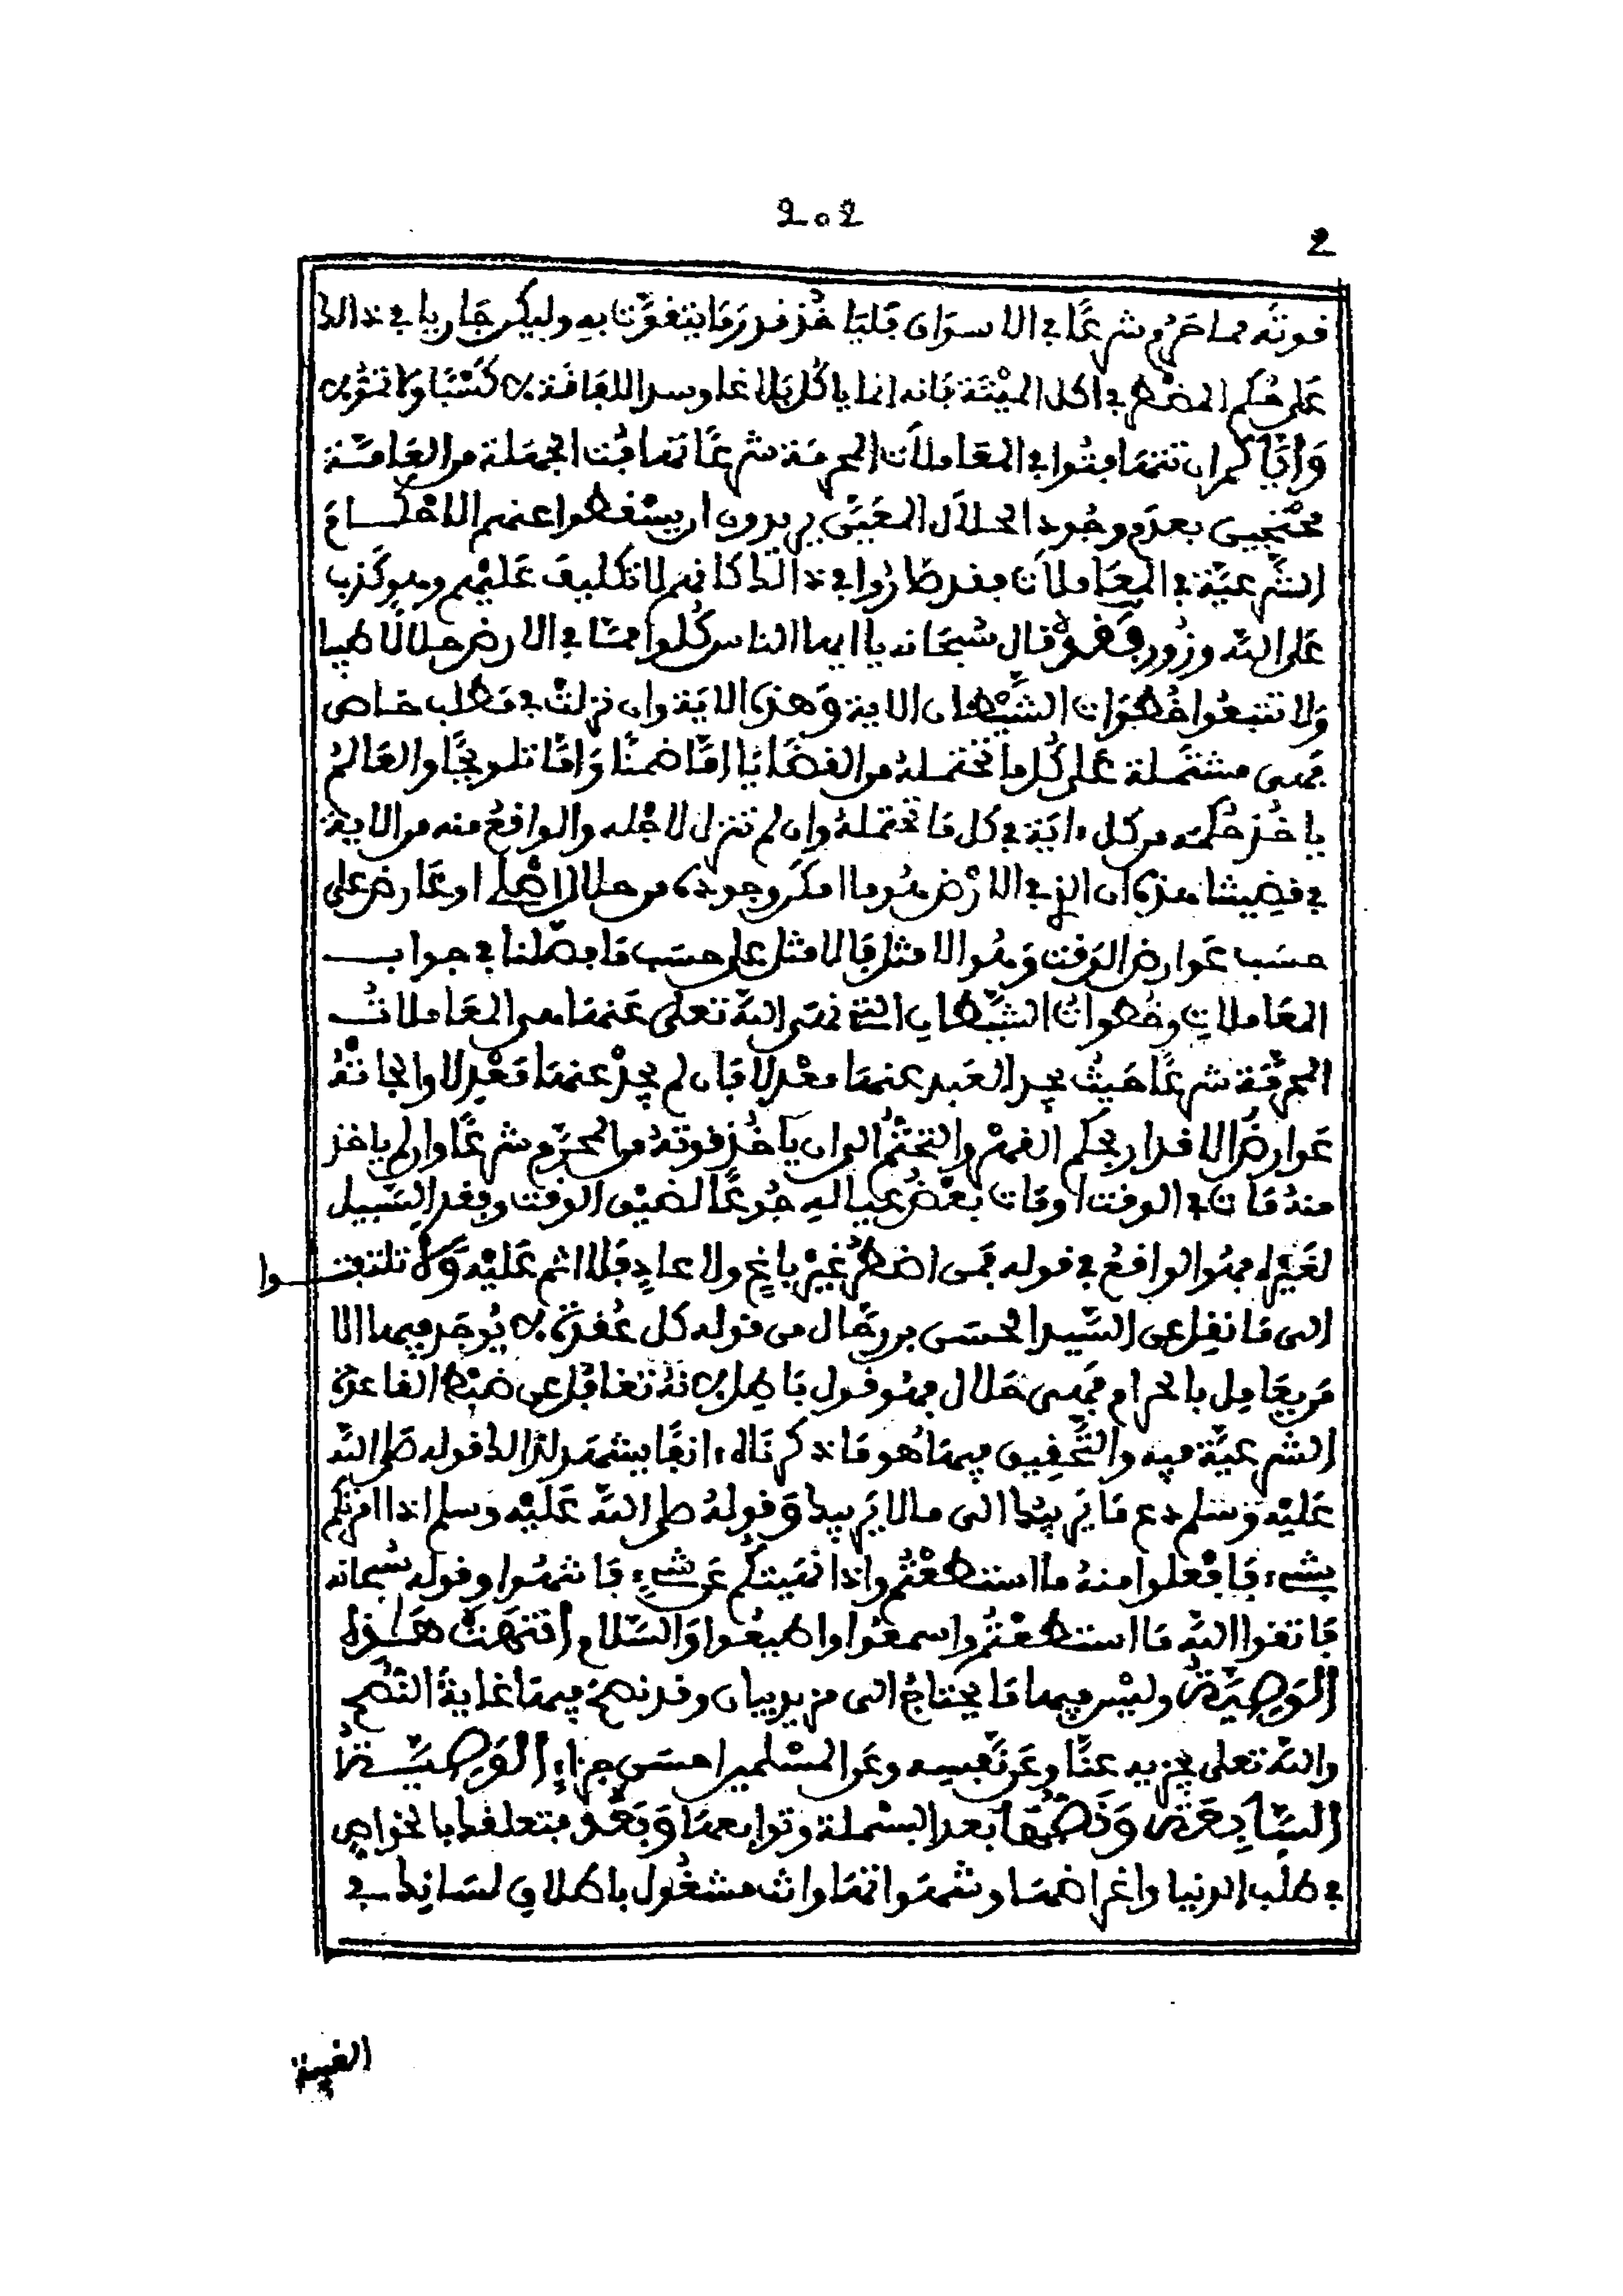 202
2
قوته مما حرم شرعا في الاسواق فليأخذ قدر ما يتقوت به وليكن جاريا في ذالك
على حكم المضطر في اكل الميتة فانه انما ياكل بلاغا وسدا للفاقة لا كسبا ولا تمولا
وإياكم ان تتهافتوا في المعاملات المحرمة شرعا تهافت الجهلة من العامة
محتجين بعدم وجود الحلال المعين يريدون ان يسقطوا عنهم الاحكام
الشرعية في المعاملات فقد صاروا في ذالك كانهم لا تكليف عليهم وهو كذب
على الله وزور فقد قال سبحانه يا ايها الناس كلوا مما في الارض حلالا طيبا
ولا تتبعوا خطوات الشيطان الاية وهذه الاية وان نزلت في مطلب خاص
فهي مشتملة على كل ما تحتمله من القضايا إما ضمنا وإما تلويحا والعالم
ياخذ حكمه من كل ءاية في كل ما تحتمله وان لم تنزل لاجله والواقع منه من الاية
في قضيتنا هذه ان الذي في الارض هو ما امكن وجوده من حلال اصلي او عارض على
حسب عوارض الوقت وهو الامثل فالامثل على حسب ما فصلنا في جواب
المعاملات وخطوات الشيطان التي نهى الله تعلى عنها هي المعاملات
المحرمة شرعا حيث يجد العبد عنها معدلا فان لم يجد عنها معدلا والجأته
عوارض الاقدار بحكم القهر والتحتم الى ان يأخذ قوته من المحرم شرعا وان لم ياخذ
منه مات في الوقت او مات بعض عياله جوعا لضيق الوقت وفقد السبيل
لغيره فهو الواقع في قوله فمن اضطر غير باغ ولا عاد فلا اثم عليه ولا تلتفتوا
الى ما نقل عن السيد الحسن بن رحال من قوله كل عقدة لا يوجد فيها الا
من يعامل بالحرام فهي حلال فهو قول باطل لانه تغافل عن ضبط القاعدة
الشرعية فيه والتحقيق فيها هو ما ذكرناه ءانفا يشهد لذالك قوله صلى الله
عليه وسلم دع ما يريبك الى ما لا يريبك وقوله صلى الله عليه وسلم اذا امرتكم
بشيء فافعلوا منه ما استطعتم واذا نهيتكم عن شيء فانتهوا وقوله سبحانه
فاتقوا الله ما استطعتم واسمعوا واطيعوا والسلام انتهت هذه
الوصية وليس فيها ما يحتاج الى مزيد بيان وقد نصح فيها غاية النصح
والله تعلى يجزيه عنا وعن نفسه وعن المسلمين احسن جزاء الوصية
السابعة ونصها بعد البسملة وتوابعها وبعد فتعلقك بالخواص
في طلب الدنيا واغراضها وشهواتها وانت مشغول باطلاق لسانك في
الغيبة